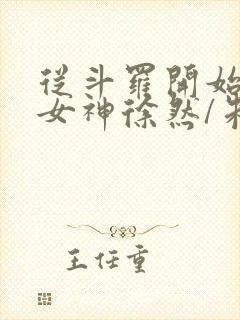 從斗羅開始
女神徐然/
王任重